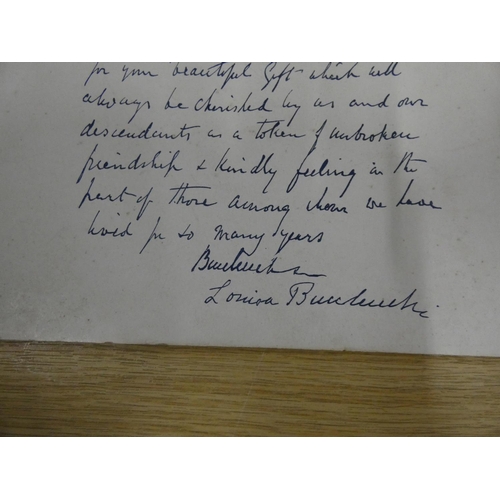 for your beautiful Gift which will
always be cherished by us and our
descendants as a token of unbroken
friendship & kindly feeling in the
part of those among whom we have
lived for so many years
Buccleuch
Louisa Buccleuch